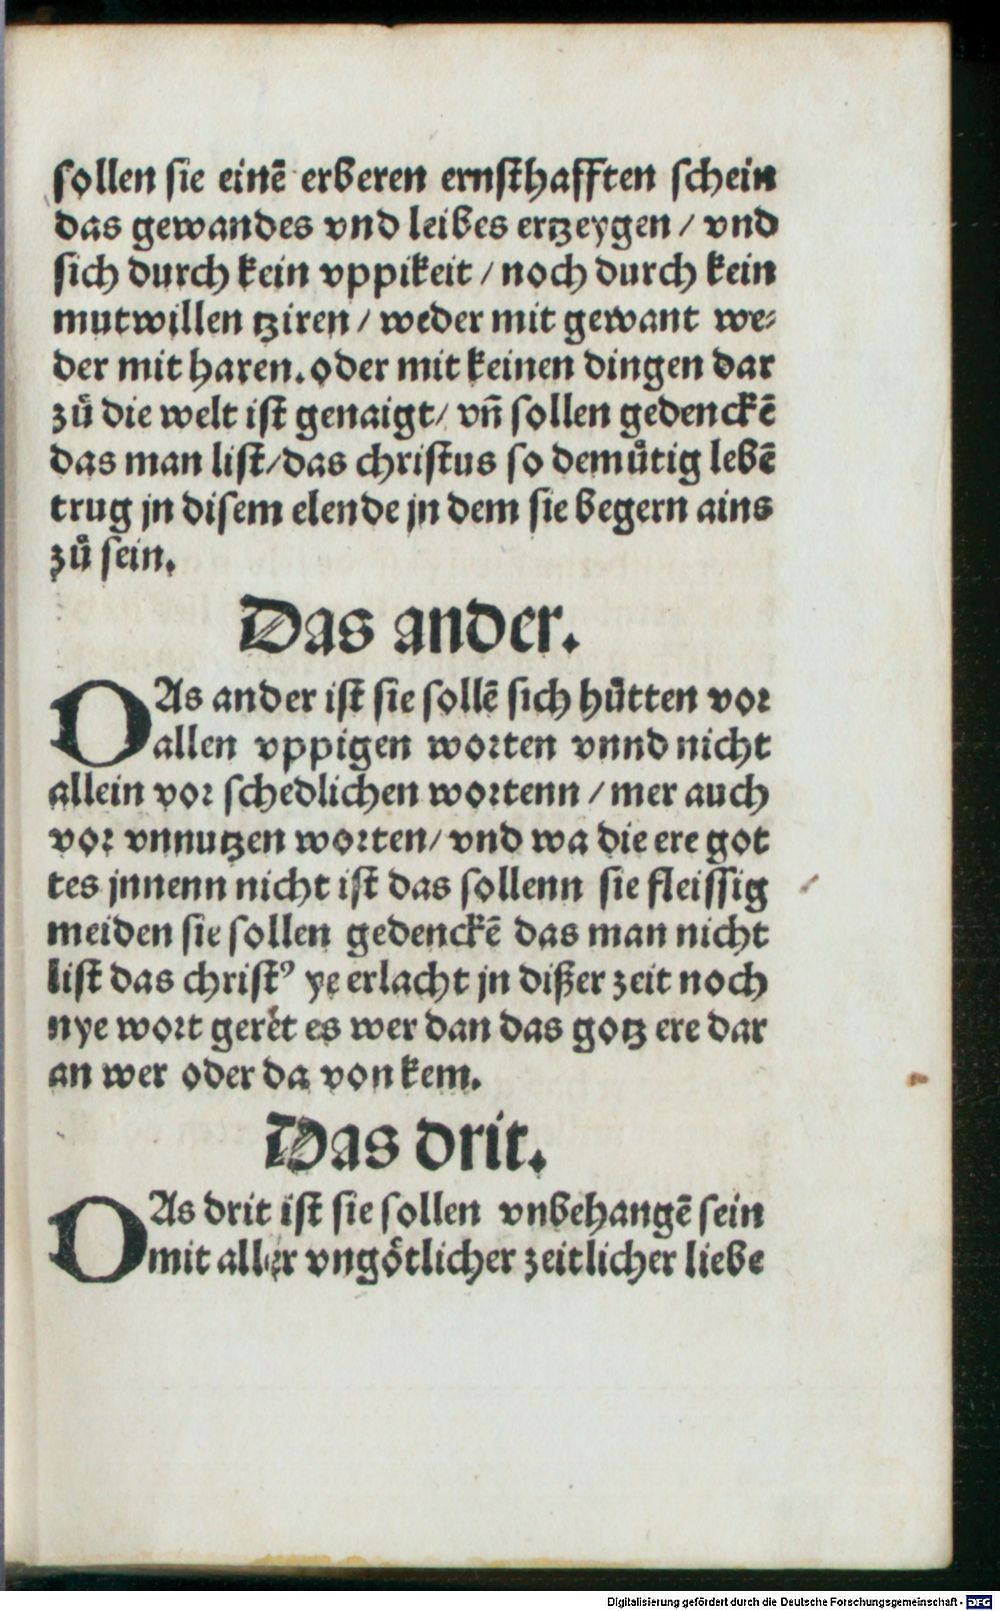 sollen sie einē erberen ernsthafften schein
das gewandes vnd leibes ertzeygen / vnd
sich durch kein vppikeit / noch durch kein
mutwillen tziren / weder mit gewant we⸗
der mit haren. oder mit keinen dingen dar
zů die welt ist genaigt / vn̄ sollen gedenckē
das man list / das christus so demůtig lebē
trug jn disem elende jn dem sie begern ains
zů sein.
Das ander.
DAs ander ist sie sollē sich hůtten vor
allen vppigen worten vnnd nicht
allein vor schedlichen wortenn / mer auch
vor vnnutzen worten / vnd wa die ere got
tes jnnenn nicht ist das sollenn sie fleissig
meiden sie sollen gedenckē das man nicht
list das christꝰ ye erlacht jn dißer zeit noch
nye wort gerět es wer dan das gotz ere dar
an wer oder da von kem.
Das drit.
DAs drit ist sie sollen vnbehangē sein
mit aller vngőtlicher zeitlicher liebe
Digitalisierung gefördert durch die Deutsche Forschungsgemeinschaft - DFG